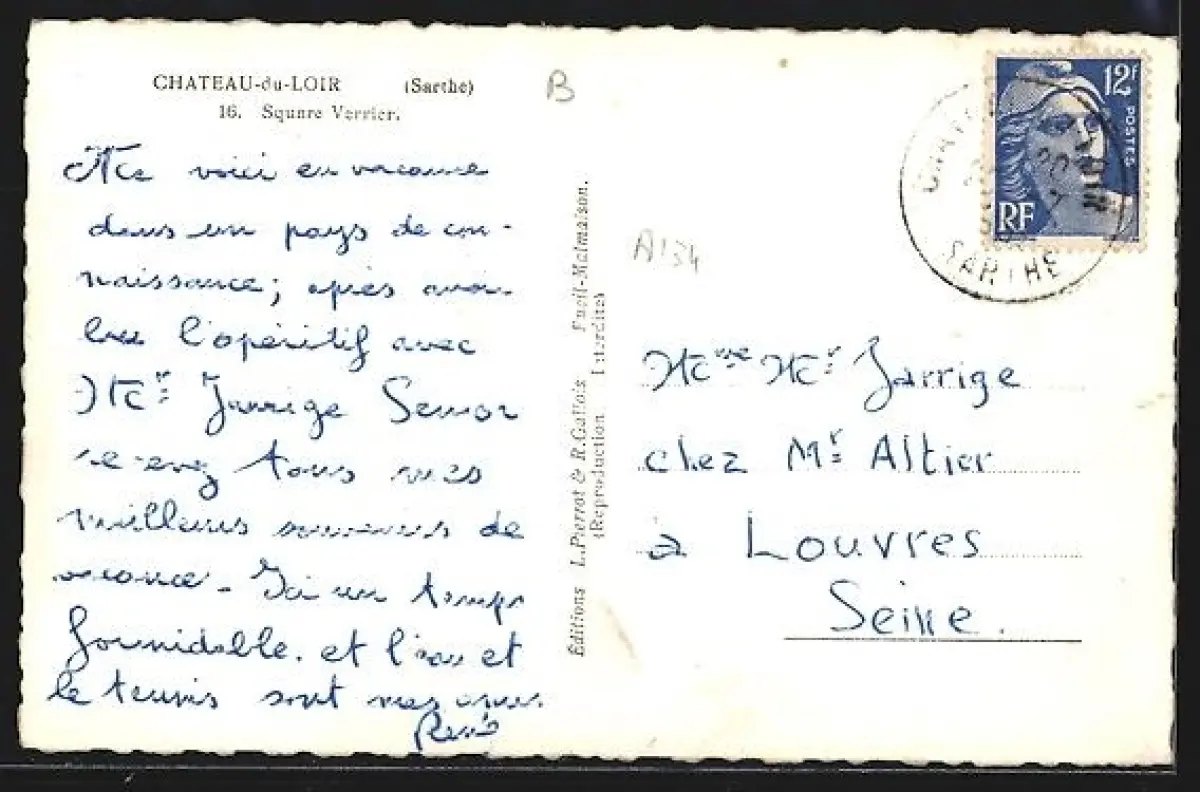 CHATEAU-du-LOIR (Sarthe)
16. Square Verrier.
B
Me voici en vacance
dans un pays de con-
naissance; après avoir
bu l'apéritif avec
Mr Jarrige Senior
recevez tous mes
meilleurs souvenirs de
vacance. Ici un temps
formidable. et l'eau et
le tennis sont mes
René
Éditions L. Pierrot & R. Gallois. Rueil-Malmaison.
(Reproduction Interdite)
A134
12F
POSTES
RF
SARTHE
Mme Mr Jarrige
chez Mr Altier
à Louvres
Seine.